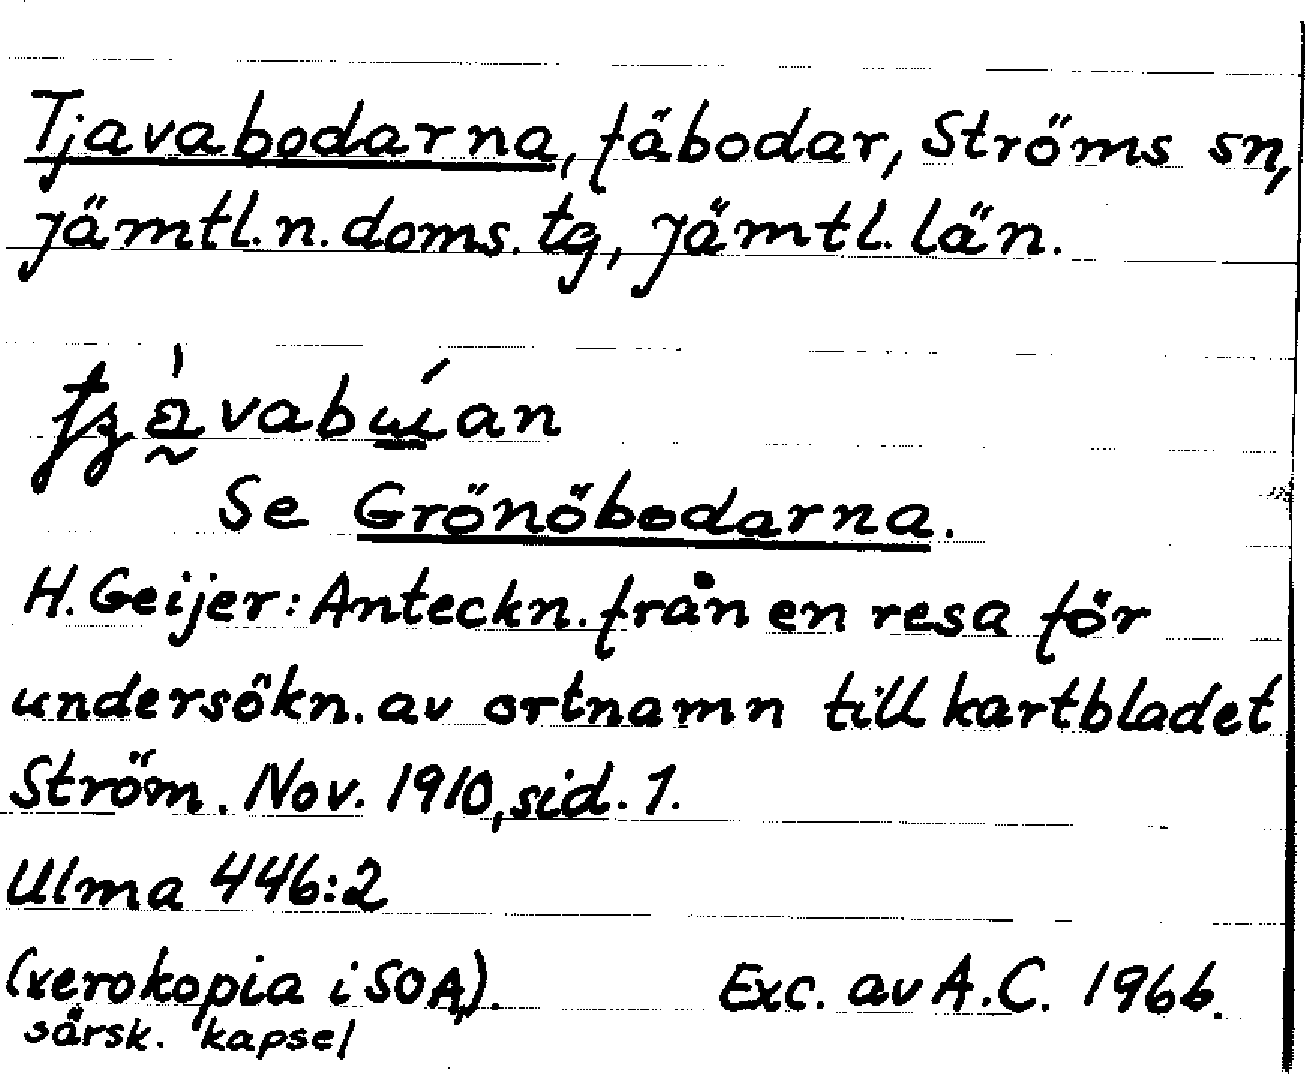 Tjavabodarna, fäbodar, Ströms sn,
Jämtl. n. doms. tg, Jämtl. län.
Se Grönöbodarna.
H. Geijer: Anteckn. från en resa för
undersökn. av ortnamn till kartbladet
Ström. Nov. 1910, sid. 1.
Ulma 446:2
(xerokopia i SOA). Exc. av A.C. 1966.
särsk. kapsel